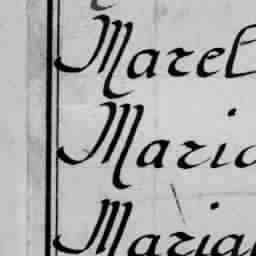 Marel
Maria
Maria